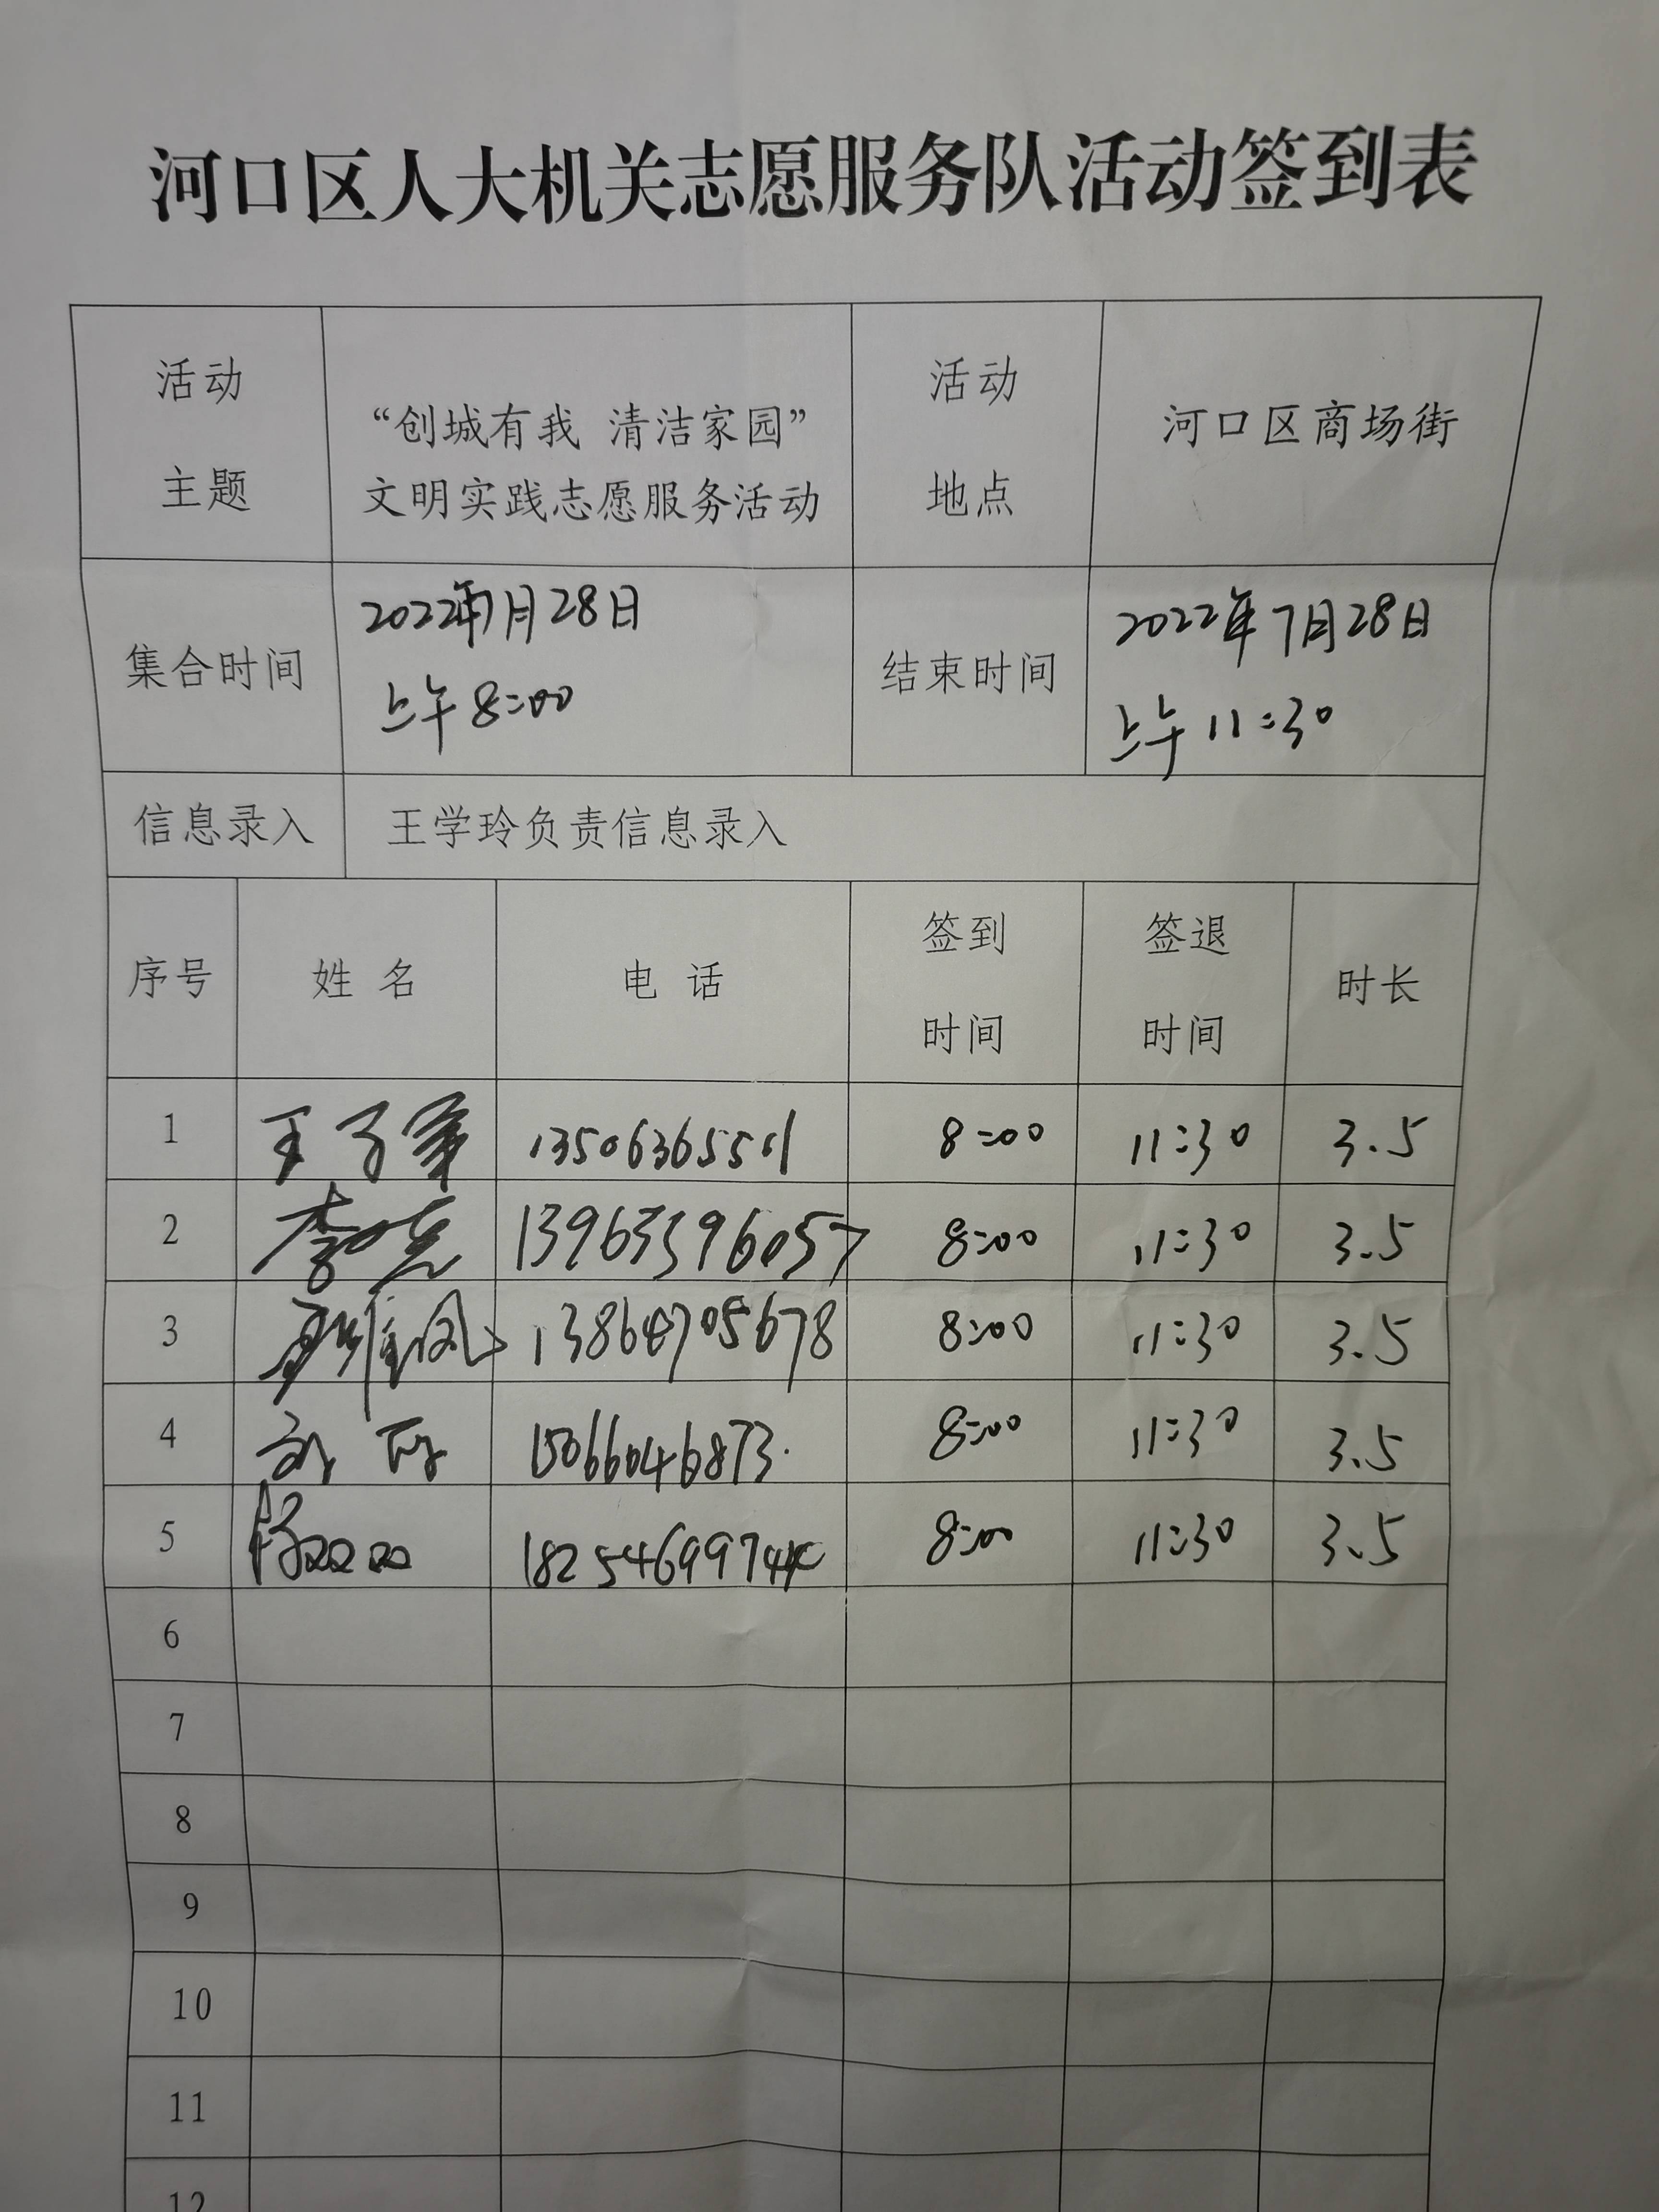 河口区人大机关志愿服务队活动签到表
活动
主题
“创城有我 清洁家园”
文明实践志愿服务活动
活动
地点
河口区商场街
集合时间
2022年7月28日
上午8:00
结束时间
2022年7月28日
上午11:30
信息录入 王学玲负责信息录入
序号 姓 名 电 话 签到时间 签退时间 时长
1 8:00 11:30 3.5
2 8:00 11:30 3.5
3 13864705678 8:00 11:30 3.5
4 15066046873 8:00 11:30 3.5
5 8:00 11:30 3.5
6
7
8
9
10
11
12